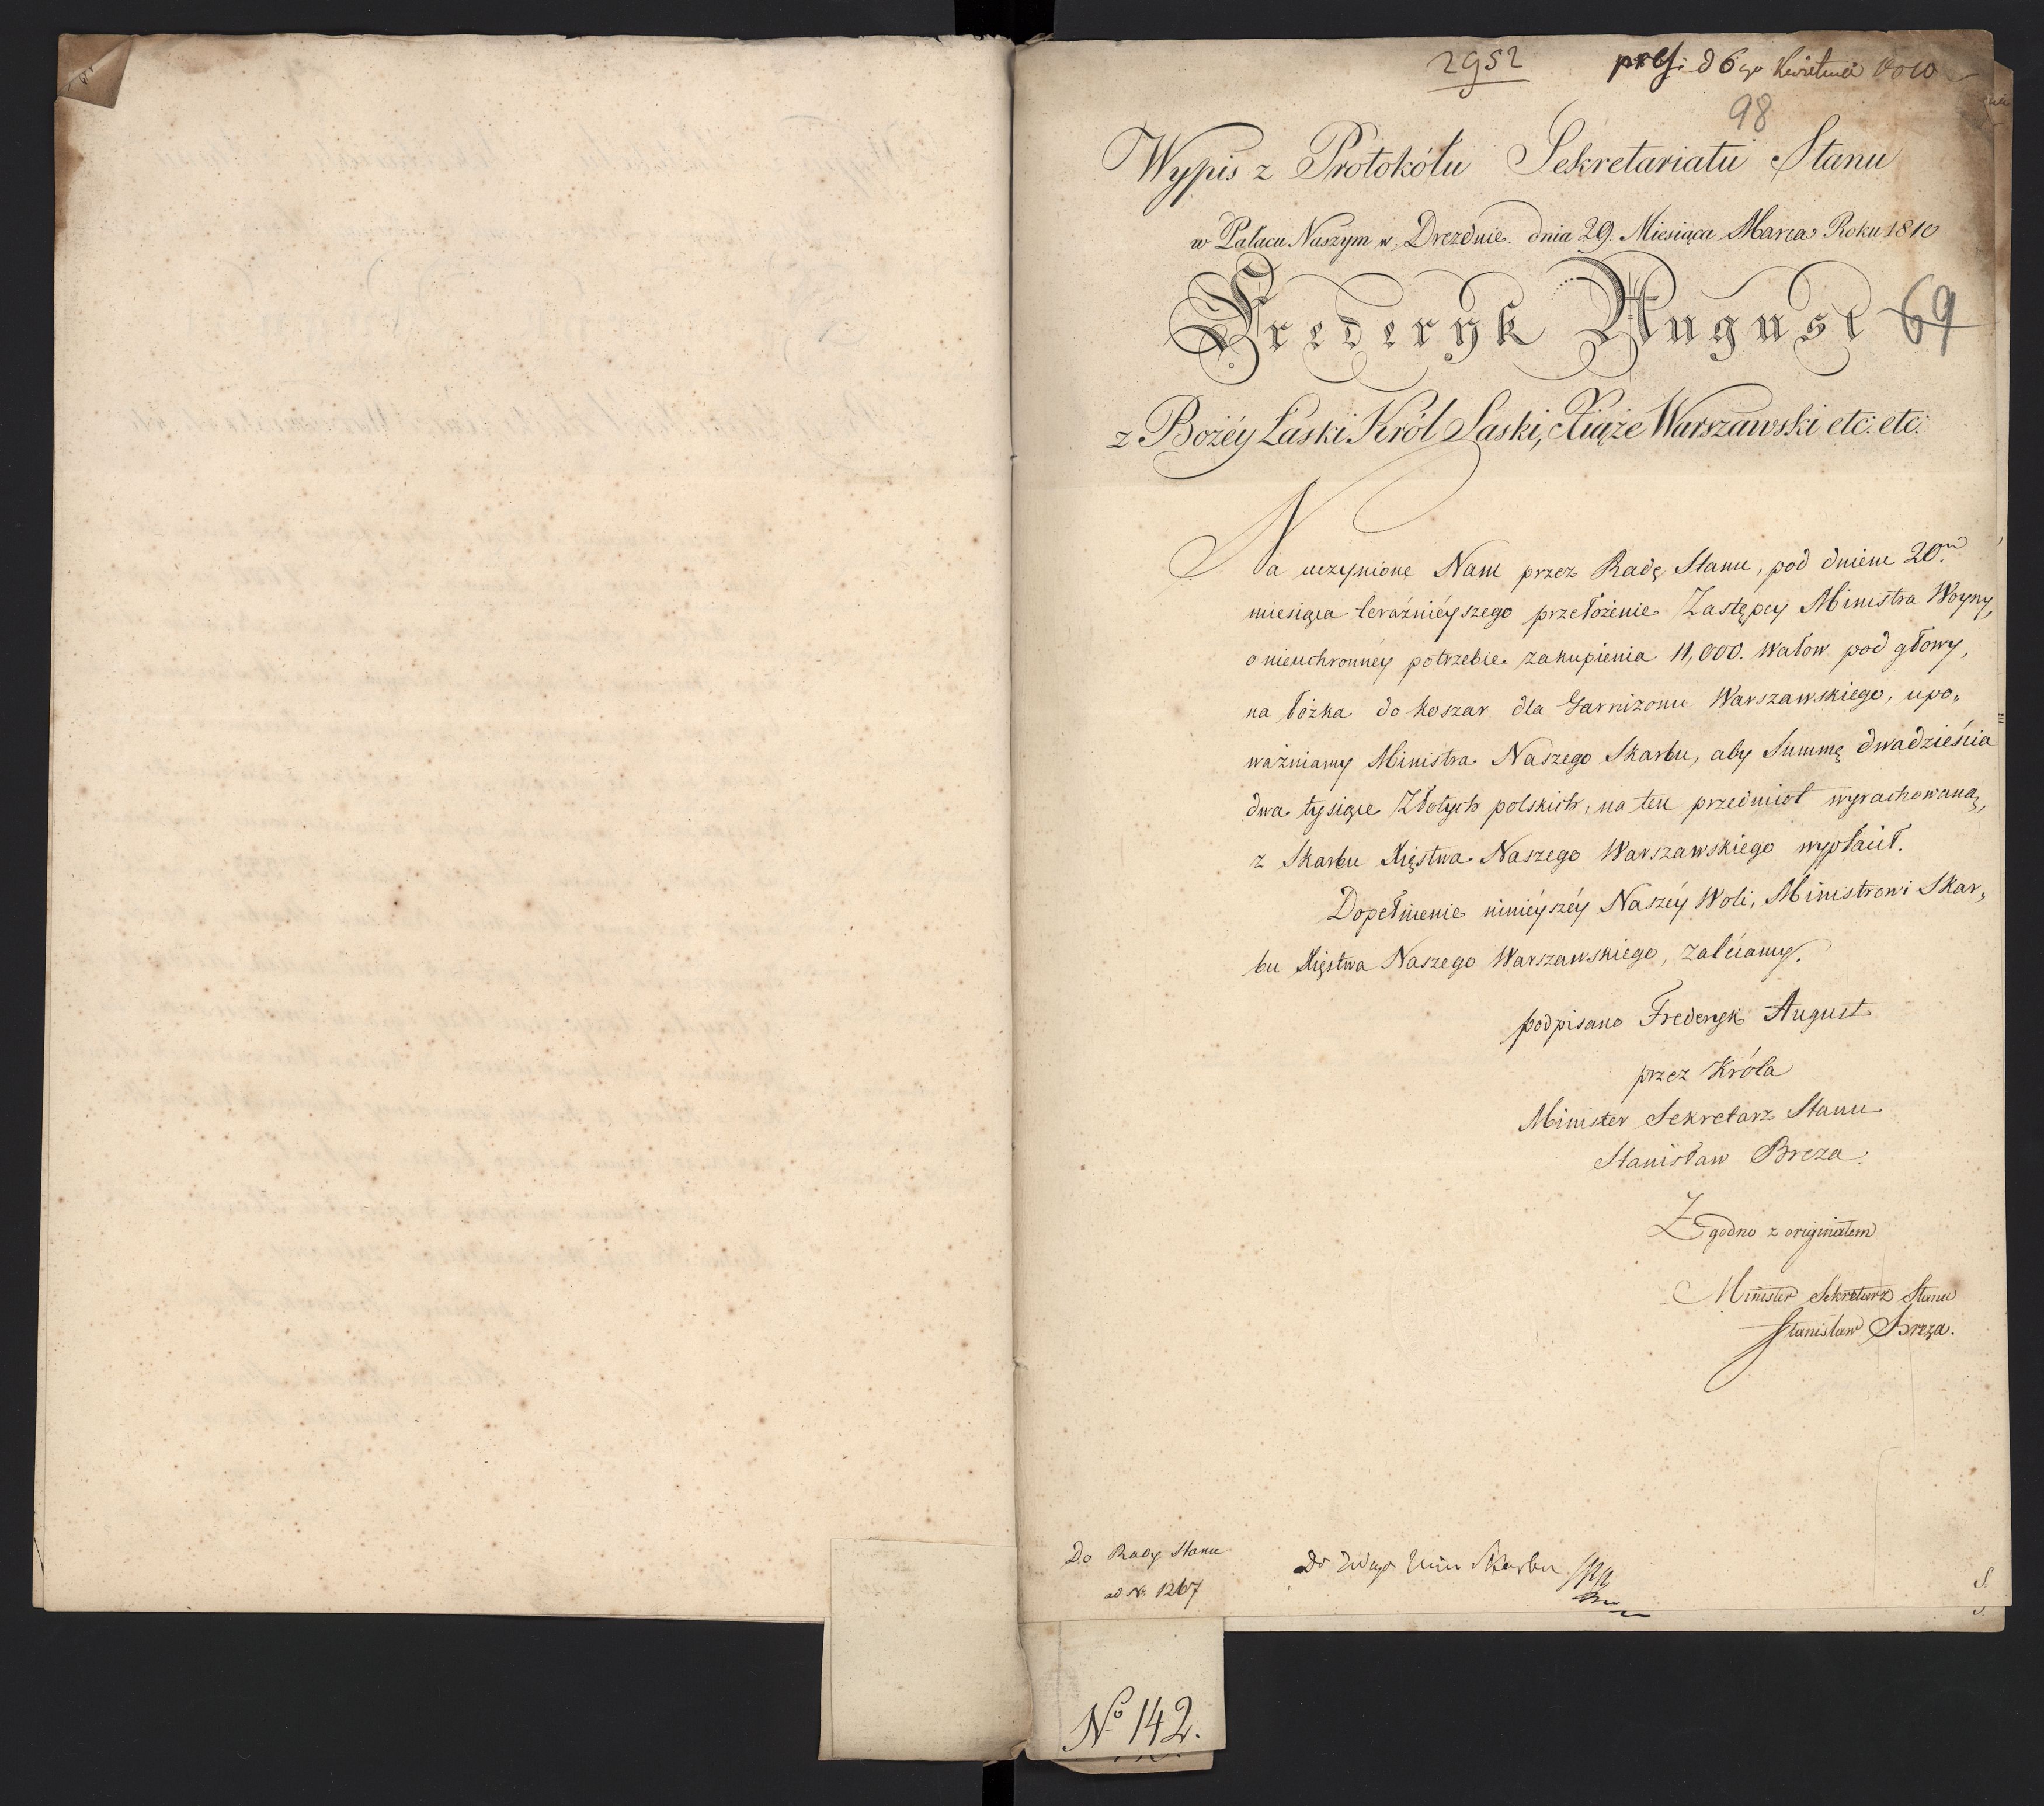 2952
pres: d 6go Kwietnia 1810
98
Wypis z Protokółu Sekretariatu Stanu
w Pałacu Naszym w Dreznie dnia 29. Miesiąca Marca Roku 1810
Frederyk August
69
z Bożéy Łaski Król Saski, Xiąże Warszawski etc: etc:
Na uczynione Nam przez Radę Stanu, pod dniem 20.m
miesiąca teraźniéyszego przełożenie Zastępcy Ministra Woyny,
o nieuchronnéy potrzebie zakupienia 11,000. wałow pod głowy,
na łóżka do koszar dla Garnizonu Warszawskiego, upo„
ważniamy Ministra Naszego Skarbu, aby Summę dwadzieścia
dwa tysiące Złotych polskich, na ten przedmiot wyrachowaną,
z Skarbu Xięstwa Naszego Warszawskiego wypłacił.
Dopełnienie ninieyszéy Naszéy Woli, Ministrowi Skar„
bu Xięstwa Naszego Warszawskiego, zalécamy.
podpisano Frederyk August
przez Króla
Minister Sekretarz Stanu
Stanisław Breza.
Zgodno z originałem
Minister Sekretarz Stanu
Stanisław Breza.
Do Rady Stanu
ad Nr 1267
Do Skarbu
No 142.